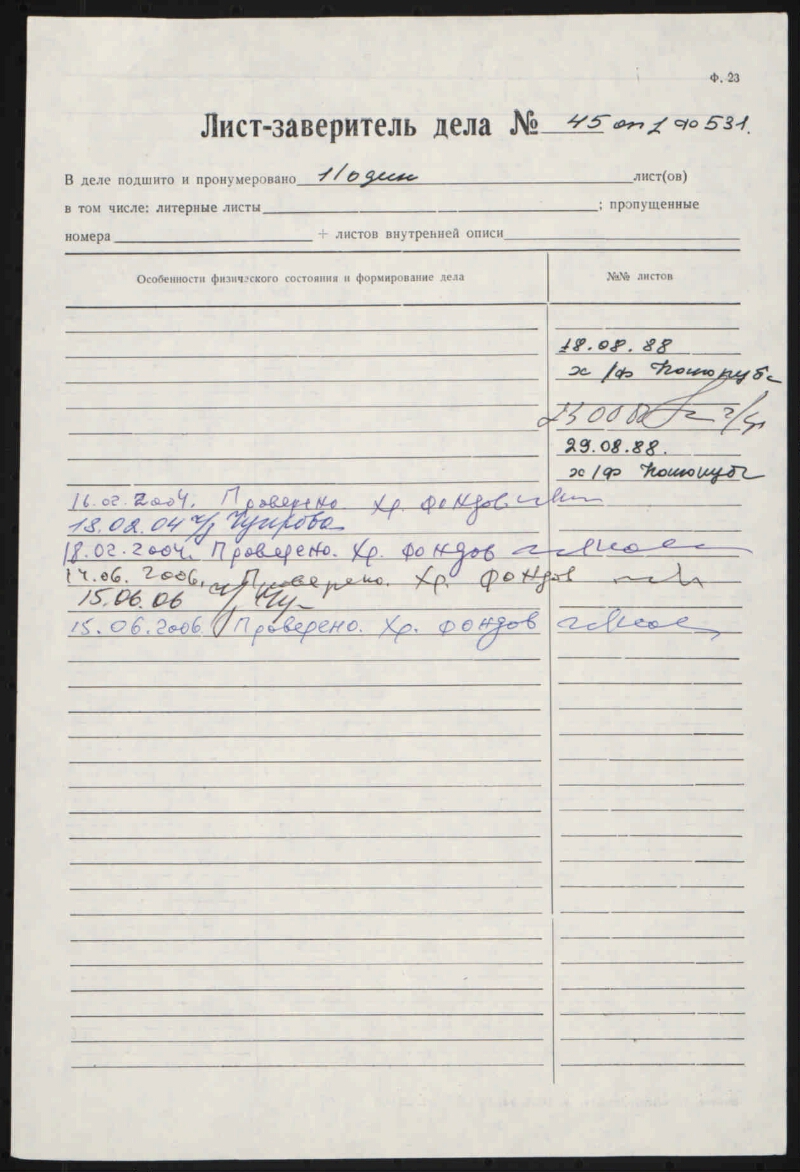 Ф. 23
Лист-заверитель дела № 45 оп 1 до 531.
В деле подшито и пронумеровано 1/один лист(ов)
в том числе: литерные листы ; пропущенные
номера + листов внутренней описи
Особенности физического состояния и формирование дела №№ листов
18.08.88
х/ф
29.08.88.
х/ф
16.02.2004. Проверено. Хр. фондов
18.02.04 Чупрова
18.02.2004. Проверено. Хр. фондов
14.06.2006. Проверено. Хр. фондов
15.06.06
15.06.2006. Проверено. Хр. фондов